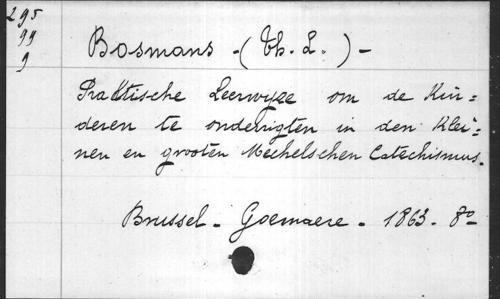 295
99
9
Bosmans - (Th. L. ) -
Praktische Leerwyze om de Kin=
deren te onderrigten in den Klei=
nen en grooten Mechelschen Catechismus.
Brussel - Goemaere - 1863 - 8º